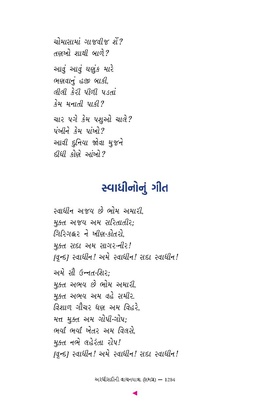 ચોમાસામાં ગાજવીજ શેં?
તણખો શાથી બાળે?
આવું આવું ઘણુંક મારે
ભણવાનું હજી બાકી.
લીલી કેરી પીળી પડતાં
કેમ મનાતી પાકી?
ચાર પગે કેમ પશુઓ ચાલે?
પંખીને કેમ પાંખો?
આવી દુનિયા જોવા મુજને
દીધી કોણે આંખો?
સ્વાધીનોનું ગીત
સ્વાધીન અજય છે ભોમ અમારી.
મુક્ત અજય અમ સરિતાતીર;
ગિરિગહ્વર ને ખીણ-કોતરો.
મુક્ત સદા અમ સાગર-નીર!
[વૃન્દ] સ્વાધીન! અમે સ્વાધીન! સદા સ્વાધીન!
અમે સૌ ઉન્નત-શિર;
મુક્ત અભય છે ભોમ અમારી.
મુક્ત અભય અમ વહે સમીર.
વિશાળ ગૌચર ધણ અમ વિહરે.
મત્ત મુક્ત અમ ગોપી-ગોપ;
ભર્યાં ભર્યાં ખેતર અમ વિલસે.
મુક્ત નભે લહેરંતા રોપ!
[વૃન્દ] સ્વાધીન! અમે સ્વાધીન! સદા સ્વાધીન!
અરધી સદીની વાચનયાત્રા — 1294